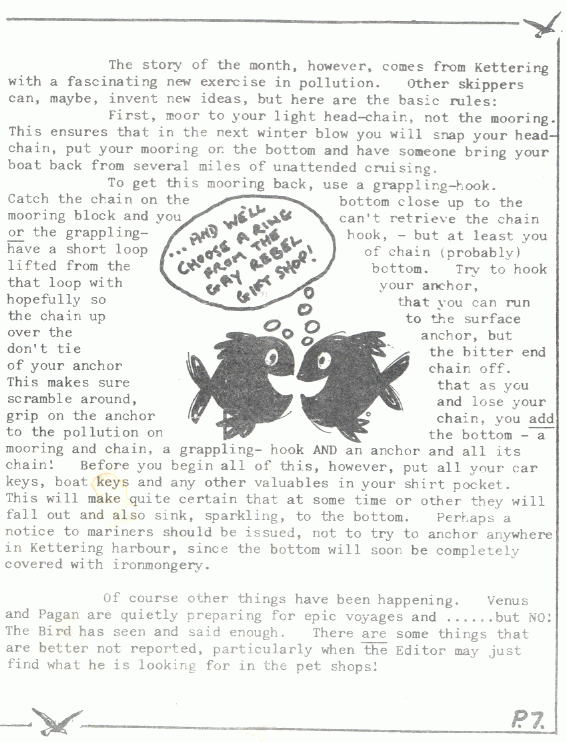 The story of the month, however, comes from Kettering
with a fascinating new exercise in pollution. Other skippers
can, maybe, invent new ideas, but here are the basic rules:
First, moor to your light head-chain, not the mooring.
This ensures that in the next winter blow you will snap your head-
chain, put your mooring on the bottom and have someone bring your
boat back from several miles of unattended cruising.
To get this mooring back, use a grappling-hook.
Catch the chain on the bottom close up to the
mooring block and you can't retrieve the chain
or the grappling- hook, - but at least you
have a short loop of chain (probably)
lifted from the bottom. Try to hook
that loop with your anchor,
hopefully so that you can run
the chain up to the surface
over the anchor, but
don't tie the bitter end
of your anchor chain off.
This makes sure that as you
scramble around, and lose your
grip on the anchor chain, you add
to the pollution on the bottom - a
mooring and chain, a grappling- hook AND an anchor and all its
chain! Before you begin all of this, however, put all your car
keys, boat keys and any other valuables in your shirt pocket.
This will make quite certain that at some time or other they will
fall out and also sink, sparkling, to the bottom. Perhaps a
notice to mariners should be issued, not to try to anchor anywhere
in Kettering harbour, since the bottom will soon be completely
covered with ironmongery.
...AND WE'LL
CHOOSE A RING
FROM THE
GAY REBEL
GIFT SHOP!
Of course other things have been happening. Venus
and Pagan are quietly preparing for epic voyages and ......but NO!
The Bird has seen and said enough. There are some things that
are better not reported, particularly when the Editor may just
find what he is looking for in the pet shops!
P.7.